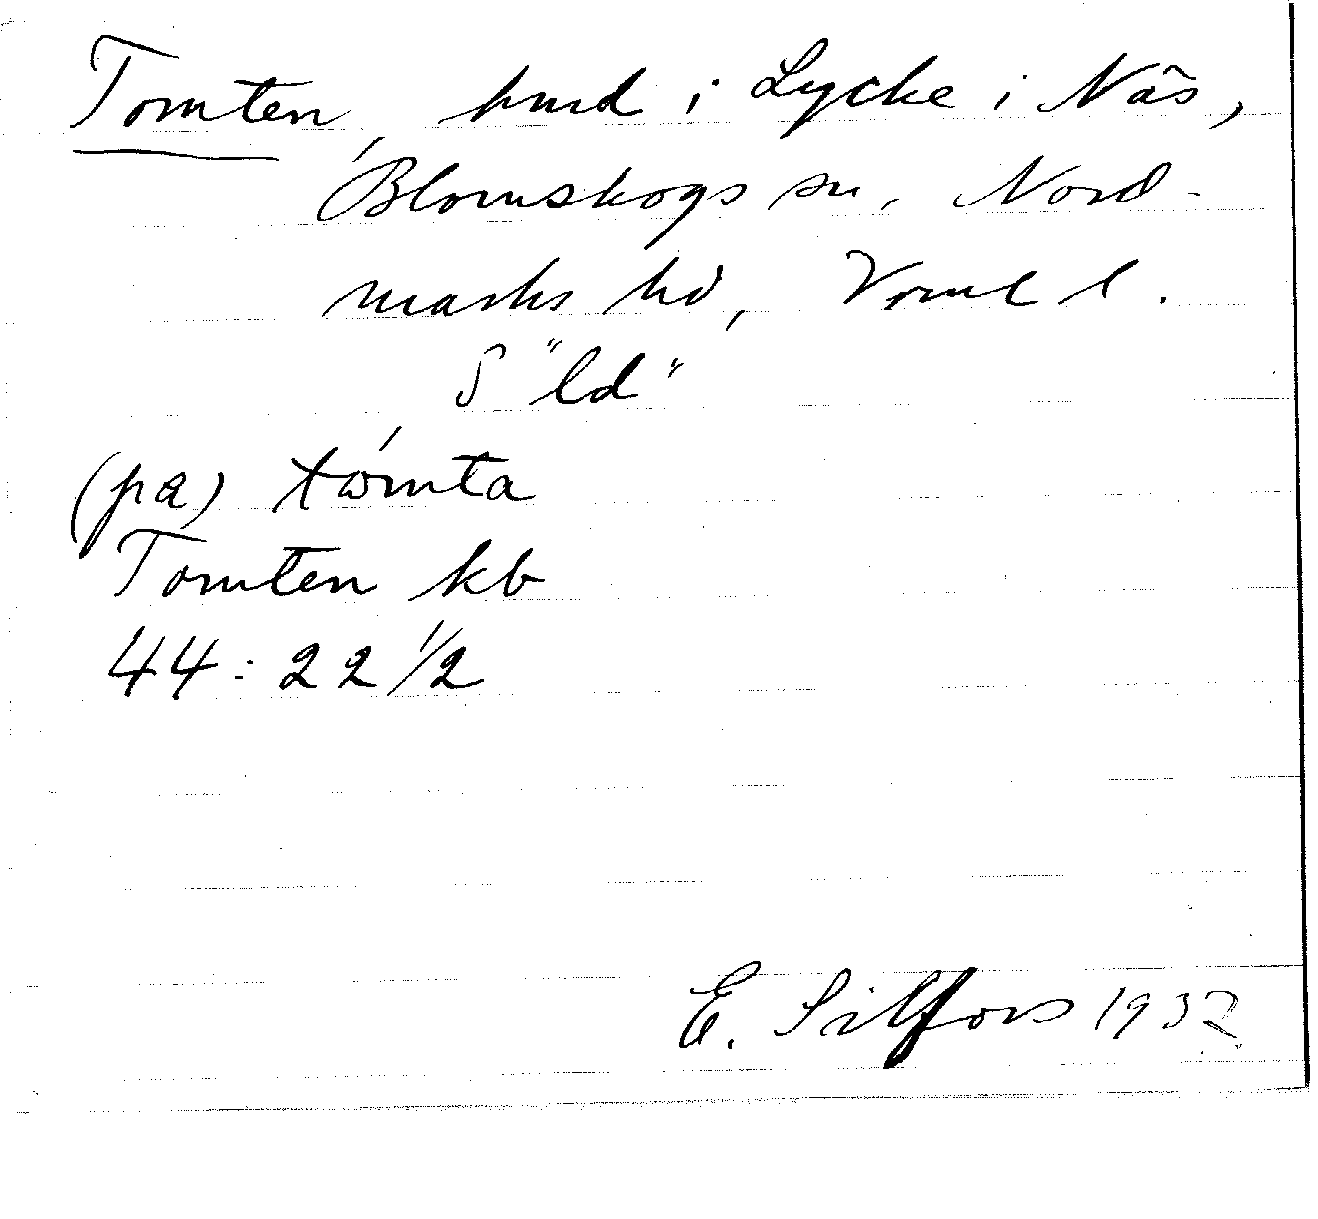 Tomten, hmd i Lycke i Näs,
Blomskogs sn, Nord-
marks hd, Värml l.
S "ld"
(pa) tómta
Tomten kb
44:22 1/2
E. Silfors 1932